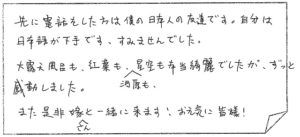 先に電話をした方は僕の日本人の友達です。自分は
日本語が下手です、すみませんでした。
大露天風呂も、紅葉も、星空も本当綺麗でしたが、ずっと
河原も、
感動しました。
また是非嫁と一緒に来ます！お元気に皆様！
さん